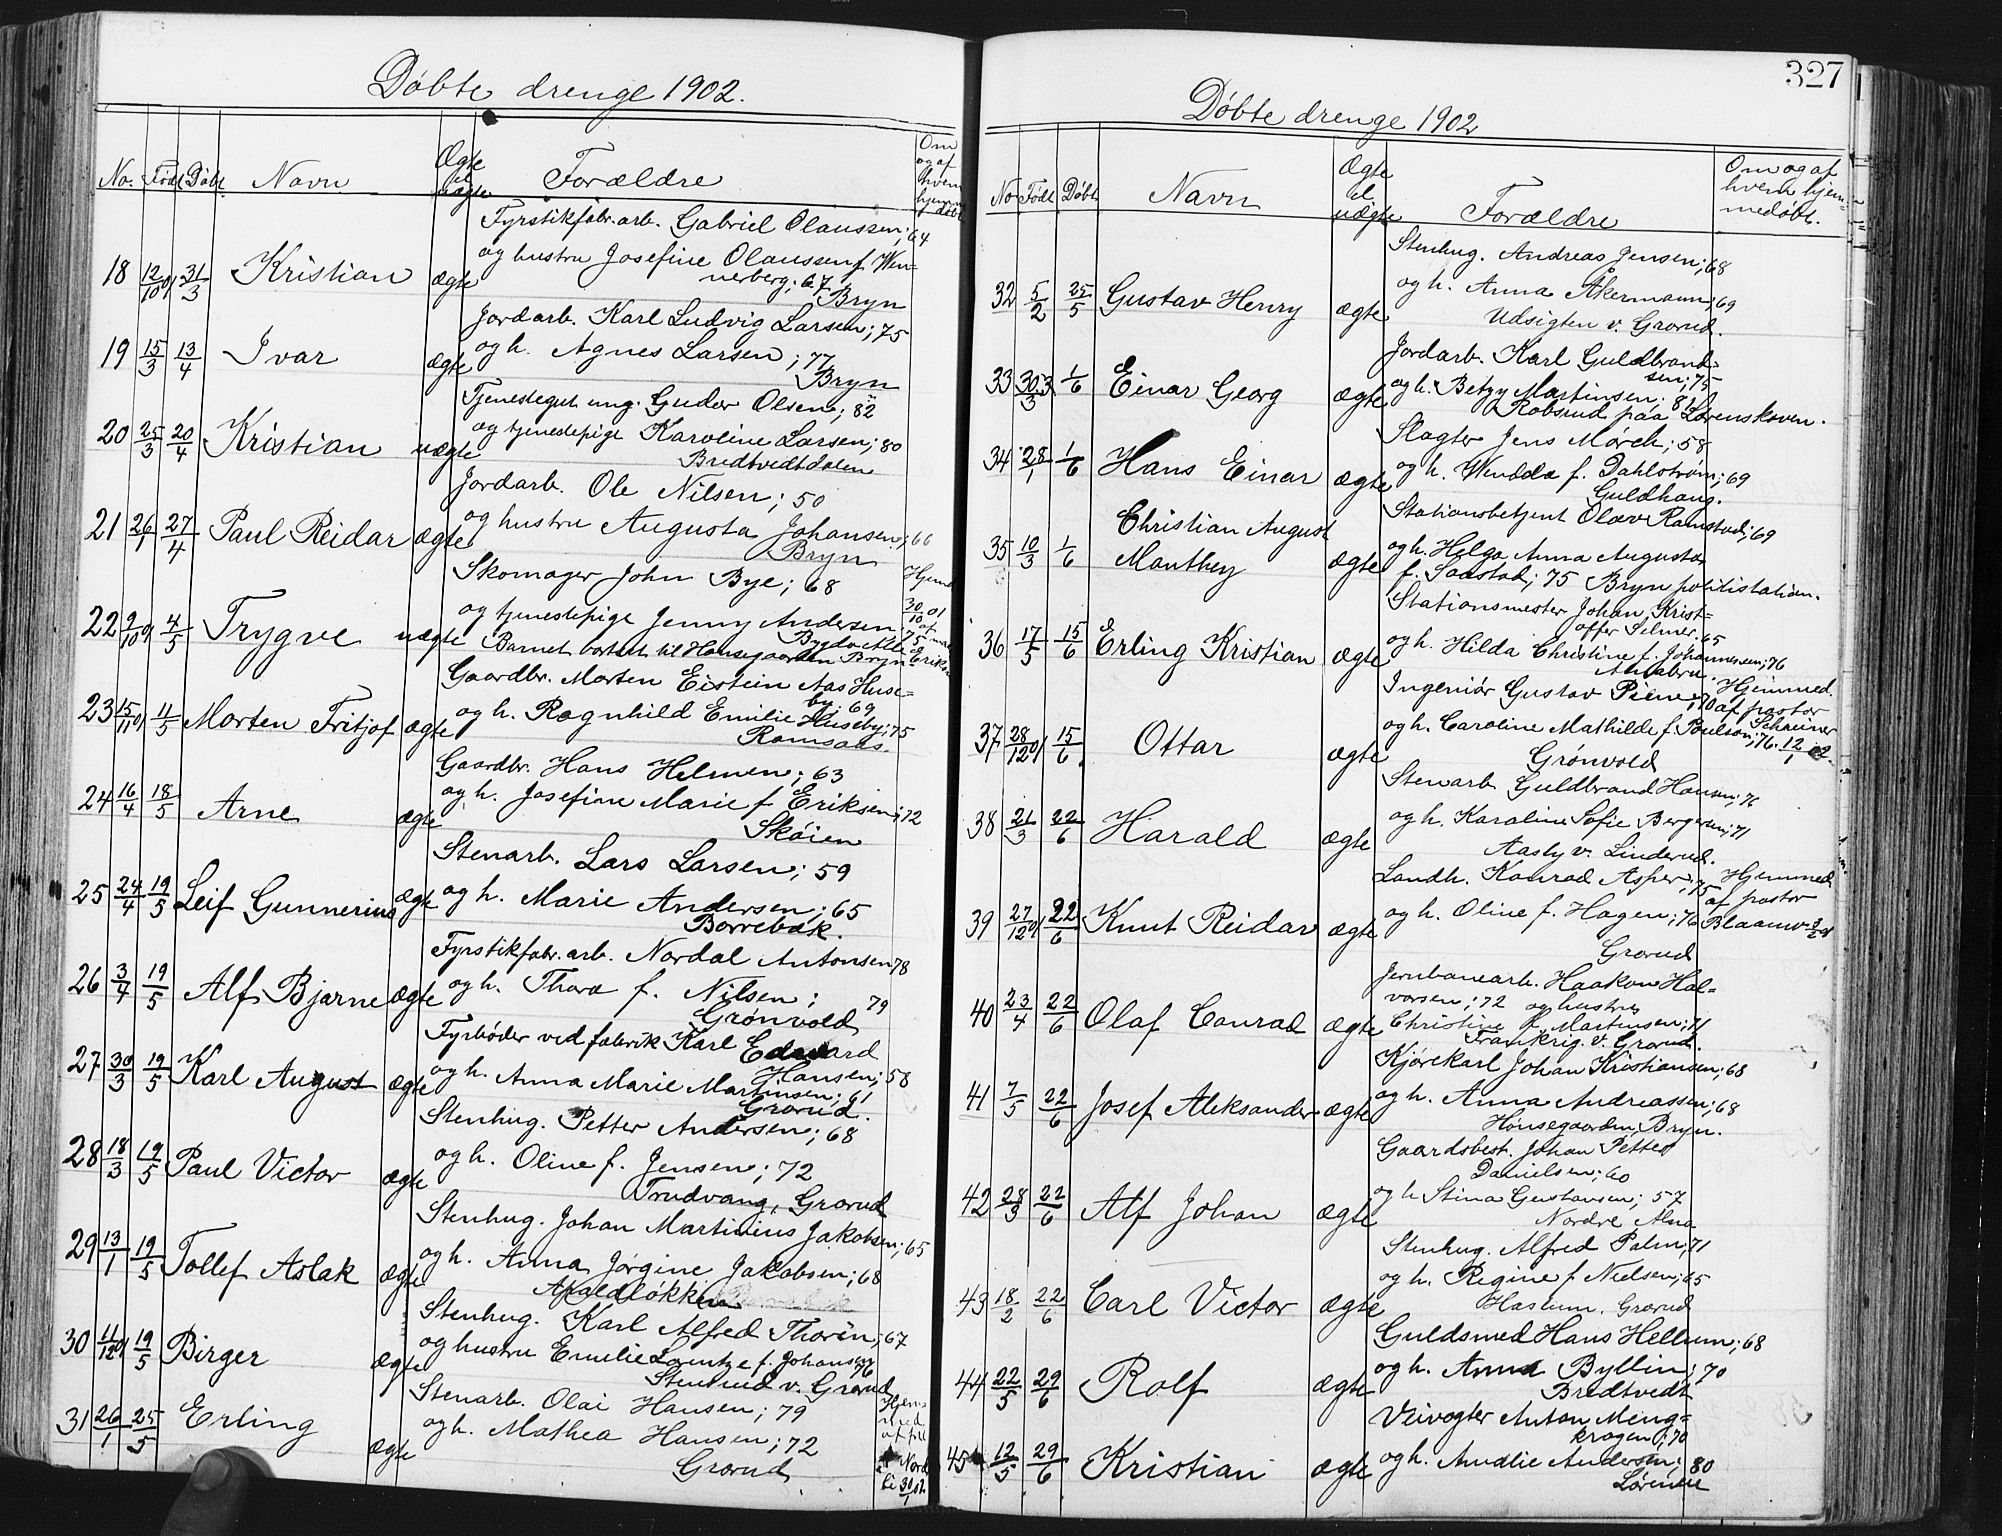 Døbte drenge 1902.
No. Født Døbt Navn Ægte el uægte Forældre Om og af hvem hjemmedøbt
Fyrstikfabr.arb. Gabriel Olaussen; 64
18 12/10 01 31/3 Kristian ægte og hustru Josefine Olaussen f. Wen=
nerberg; 67
Bryn
Jordarb. Karl Ludvig Larsen; 75
19 15/3 13/4 Ivar ægte og h. Agnes Larsen; 77
Bryn
Tjenestegut ung. Gudor Olsen; 82
20 25/3 20/4 Kristian uægte og tjenestepige Karoline Larsen; 80
Bredtvedtdalen
Jordarb. Ole Nilsen; 50
21 26/1 27/4 Paul Reidar ægte og hustru Augusta Johansen; 66
Bryn
Skomager John Bye; 68
22 9/10 01 4/5 Trygve uægte og tjenestepige Jenny Andersen 75
Bygdø Alle
Barnet bortsat til Hønsegaarden Bryn
Hjemd 30/10 01 af
Gaardbr. Morten Eistein Aas Huse=
by; 69
23 15/11 01 11/5 Morten Fritjof ægte og h. Ragnhild Emilie Huseby; 75
Ramsaas.
Gaardbr. Hans Helmen; 63
24 16/4 18/5 Arne ægte og h. Josefine Marie f Eriksen; 72
Skøien
Stenarb. Lars Larsen; 59
25 24/4 19/5 Leif Gunnerius ægte og h. Marie Andersen; 65
Borrebæk.
Fyrstikfabr.arb. Nordal Antonsen 78
26 3/4 19/5 Alf Bjarne ægte og h. Thora f. Nilsen; 79
Grønvold
Fyrbøder ved fabrik Karl Edvard
Hansen; 58
27 30/3 19/5 Karl August ægte og h. Anna Marie Martinsen; 61
Grorud.
Stenhug. Petter Andersen; 68
28 18/3 19/5 Paul Victor ægte og h. Oline f. Jensen; 72
Trudvang, Grorud
Stenhug. Johan Martinius Jakobsen; 65
29 13/1 19/5 Tollef Aslak ægte og h. Anna Jørgine Jakobsen; 68
Apaldløkken
Stenhug. Karl Alfred Thorén; 67
30 11/12 01 19/5 Birger ægte og hustru Emelie Lorentze f. Johansen 76
Stenrud v. Grorud
Stenarb. Olai Hansen; 79
31 26/1 25/5 Erling ægte og h. Mathea Hansen; 72
Grorud
Hjem=
med
af
Nord
li 30/1 02
327
Døbte drenge 1902
No Født Døbt Navn Ægte el uægte Forældre Om og af hvem hjem=medøbt.
Stenhug. Andreas Jensen; 68
32 5/2 25/5 Gustav Henry ægte og h. Anna Åkermann; 69
Udsigten v. Grorud.
Jordarb. Karl Guldbrand=
sen; 75
33 30/3 1/6 Einar Georg ægte og h. Betzy Martinsen; 81
Robsrud paa Lørenskoven.
Slagter Jens Mørch; 58
34 28/1 1/6 Hans Einar ægte og h. Wendda f. Dahlstrøm; 69
Guldhaug.
Stationsbetjent Olav Ramstad; 69
35 10/3 1/6 Christian August
Manthey ægte og h. Helga Anna Augusta
f. Saastad; 75 Bryn politistation.
Stationsmester Johan Krist=
offer Selmer. 65
36 17/5 15/6 Erling Kristian ægte og h. Hilda Christine f. Johannesen; 76
Alnabru.
Ingeniør Gustav Piene; 70
37 28/12 01 15/6 Ottar ægte og h. Caroline Mathilde f. Paulson; 76.
Grønvold
Hjemmed.
af pastor
Schreiner
12/1 02.
Stenarb Guldbrand Hansen; 76
38 21/3 22/6 Harald ægte og h. Karoline Sofie Bergersen; 71
Aasly v. Linderud.
Landh. Konrad Asper; 75
39 27/12 01 22/6 Knut Reidar ægte og h. Oline f. Hagen; 76
Grorud
Hjemmed
af pastor
Blaauw
Jernbanearb. Haakon Hal=
vorsen; 72 og hustru
40 23/4 22/6 Olaf Conrad ægte Christine f. Martinsen; 71
Frankrig. v. Grorud.
Kjørekarl Johan Kristiansen; 68
41 7/5 22/6 Josef Aleksander ægte og h. Anna Andreassen; 68
Hønsegaarden, Bryn.
Gaardsbest. Johan Petter
Danielsen; 60
42 28/3 22/6 Alf Johan ægte og h Stina Gustavsen; 57
Nordre Alna
Stenhug. Alfred Palm 71
43 18/2 22/6 Carl Victor ægte og h. Regine f Nielsen; 65
Haslum. Grorud
Guldsmed Hans Hellum; 68
44 22/5 29/6 Rolf ægte og h. Anna Byllin; 70
Bredtvedt
Veivogter Anton Meng=
kragen; 70
45 12/5 29/6 Kristian ægte og h. Amalie Andersen; 80
Lørenen